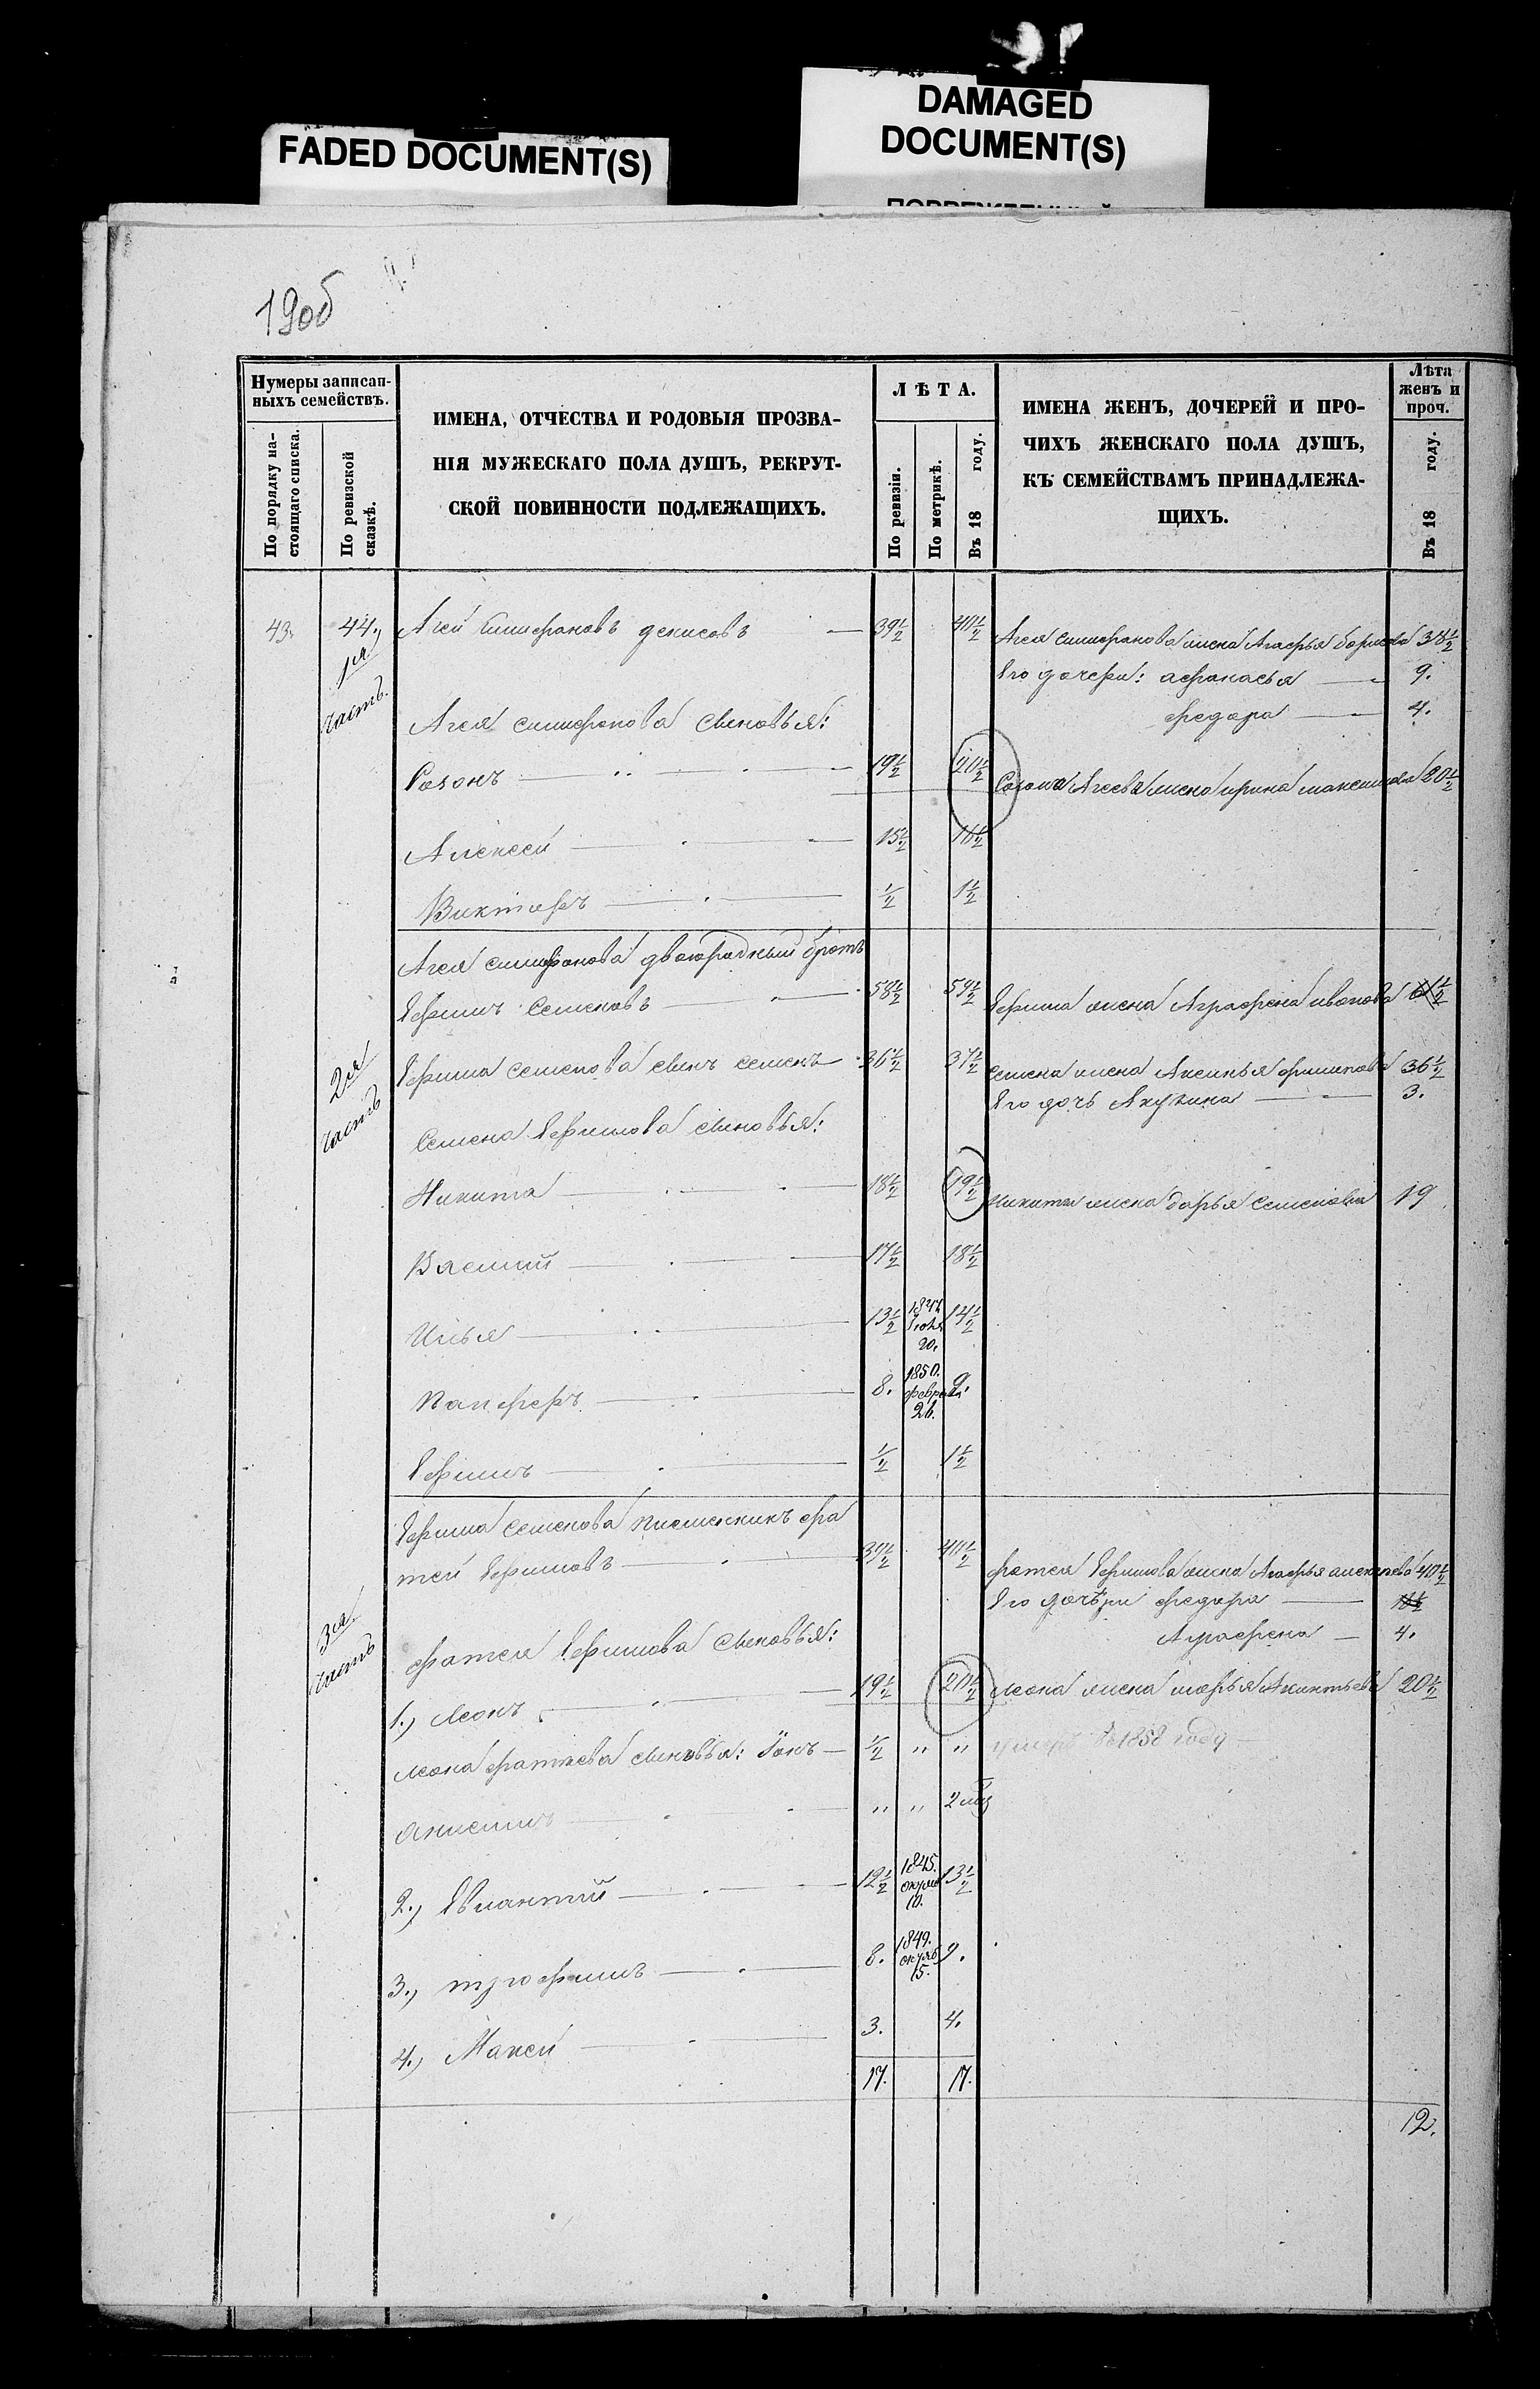 FADED DOCUMENT(S)
DAMAGED
DOCUMENT(S)
190б
Нумеры записан-
ныхъ семействъ.
По порядку на-
стоящаго списка.
По ревизской
сказкѣ.
ИМЕНА, ОТЧЕСТВА И РОДОВЫЯ ПРОЗВА-
НІЯ МУЖЕСКАГО ПОЛА ДУШЪ, РЕКРУТ-
СКОЙ ПОВИННОСТИ ПОДЛЕЖАЩИХЪ.
ЛѢТА.
По ревизіи.
По метрикѣ.
Въ 18 году.
ИМЕНА ЖЕНЪ, ДОЧЕРЕЙ И ПРО-
ЧИХЪ ЖЕНСКАГО ПОЛА ДУШЪ,
КЪ СЕМЕЙСТВАМЪ ПРИНАДЛЕЖА-
ЩИХЪ.
Лѣта
женъ и
проч.
Въ 18 году.
43. 44. Агей денисовъ — 39½ 40½
Агея жена Агафья 38½
1я
часть.
Его дочери: афанасья — 9.
федора — 4.
Агея сыновья:
Созонъ — 19½ 20½
Созона Агеева жена ирина максимова 20½
Алексей — 15½ 16½
Викторъ — ½ 1½
Агея двоюродный братъ
Ефимъ Семеновъ — 58½ 59½
Ефима жена Аграфена иванова
2я
часть
Ефима семенова сынъ семенъ 36½ 37½
семена жена Аксинья филипова 36½
Его дочь Акулина — 3.
Семена Ефимова сыновья:
Никита — 18½ 19½
никиты жена дарья семенова 19
Василий — 17½ 18½
Илья — 13½ 20. 14½
Панферъ — 8. 1850. февра 26. 9.
Ефимъ — ½ 1½
Ефима семенова племенникъ фа
тей Ефимовъ — 39½ 40½
фатея Ефимова жена Агафья 40½
Его дочери федора —
Аграфена — 4.
3я
часть
фатея Ефимова сыновья:
1., леонъ — 19½ 20½
леона жена марья 20½
леона фатеева сыновья: — ½ " "
умеръ въ 1858 году —
Анисимъ — " " 2
2., Евлантий — 12½ 1845. 10. 13½
3., трофимъ — 8. 1849. 15. 9.
4., Макей — 3. 4.
17. 17.
12.